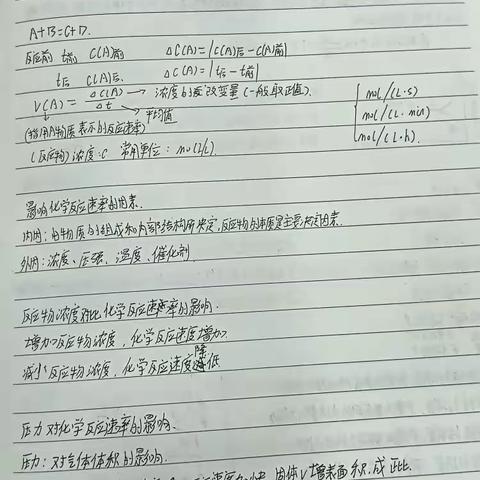 A+B=C+D.
反应前 t前 C(A)前 ΔC(A)=|C(A)后-C(A)前|
t后 C(A)后. ΔC(A)=|t后-t前|
V(A)=ΔC(A)/Δt → 浓度的改变量(一般取正值). mol/(L·s)
(指用A物质表示的反应速率) 平均值 mol/(L·min)
(反应物)浓度:C 常用单位: mol/L). mol/(L·h).
影响化学反应速率的因素.
内因:由物质的组成和内部结构所决定,反应物的本质是主要决定因素.
外因:浓度、压强、温度、催化剂
反应物浓度对比化学反应速率的影响.
增加反应物浓度,化学反应速度增加.
减小反应物浓度,化学反应速度降低
压力对化学反应速率的影响.
压力:对气体体积的影响.
固体V增表面积,成正比.